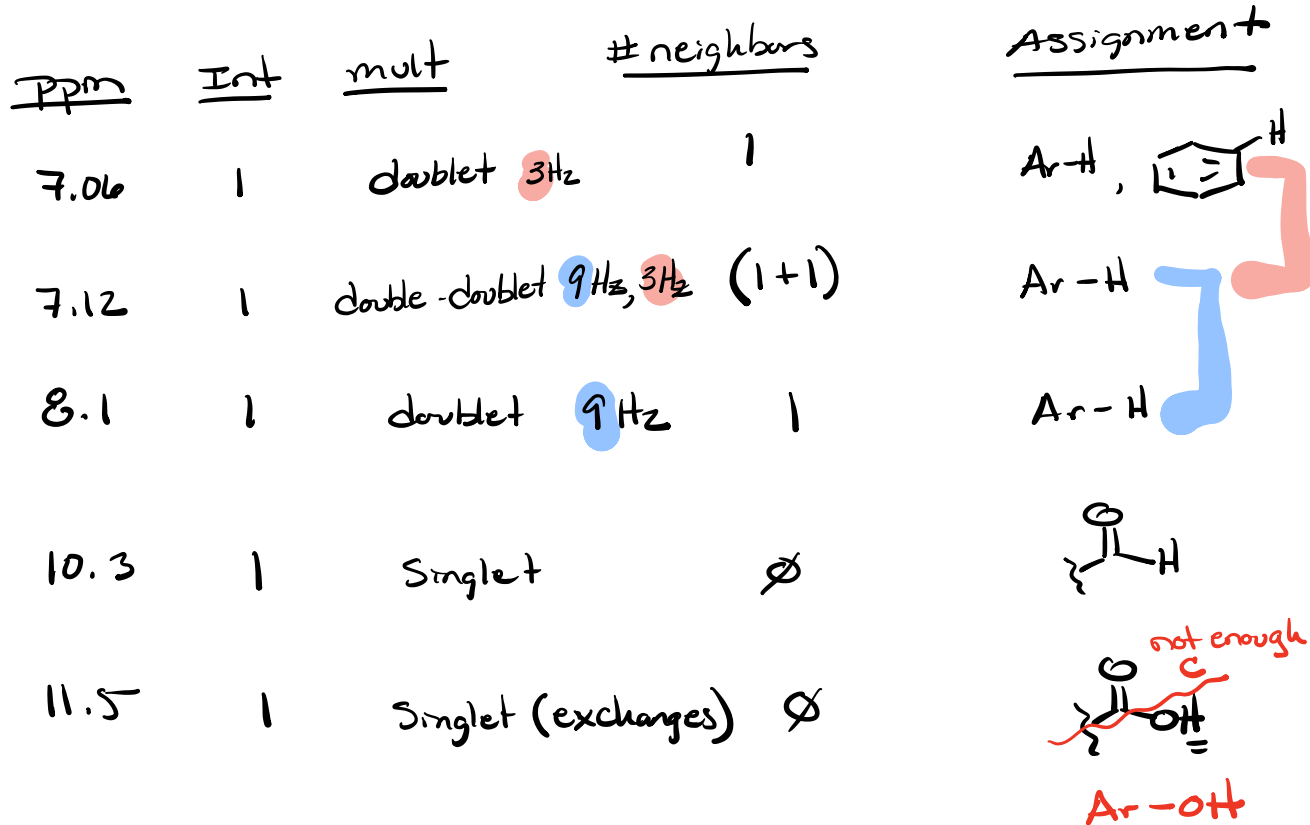 ppm Int mult # neighbors Assignment
7.06 1 doublet 3Hz 1 Ar-H, H
7.12 1 double-doublet 9Hz, 3Hz (1+1) Ar-H
8.1 1 doublet 9Hz 1 Ar-H
10.3 1 Singlet ∅ O H
not enough
C
11.5 1 Singlet (exchanges) ∅ O OH
Ar-OH